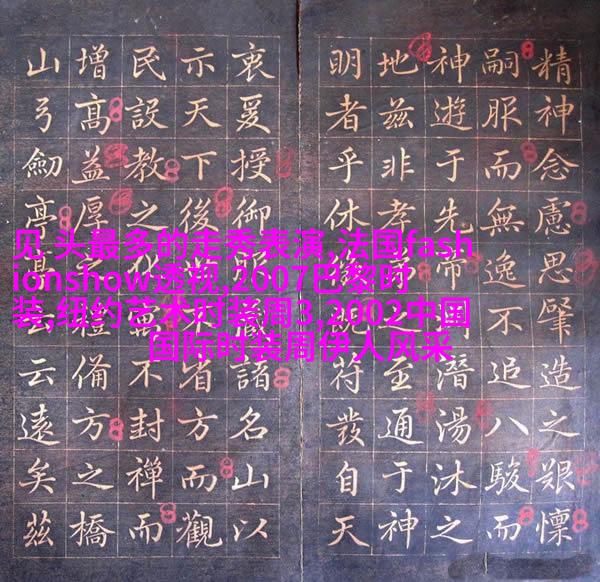 见 头最多的走秀表演,法国fash
ionshow透视,2007巴黎时
装,纽约艺术时装周3,2002中国
国际时装周伊人风采
精神念慮思肇造之艱懍
嗣服而無逸不追八駿而
神遊于先帝潛湯沐之
地茲非孝之至通于神
明者乎休符發自天
衷爰授御藏諸名山以
示天下後省方而觀
民設教之化不封禪而
增高益厚備方之橋
山弓劍亭亭云云遠矣茲